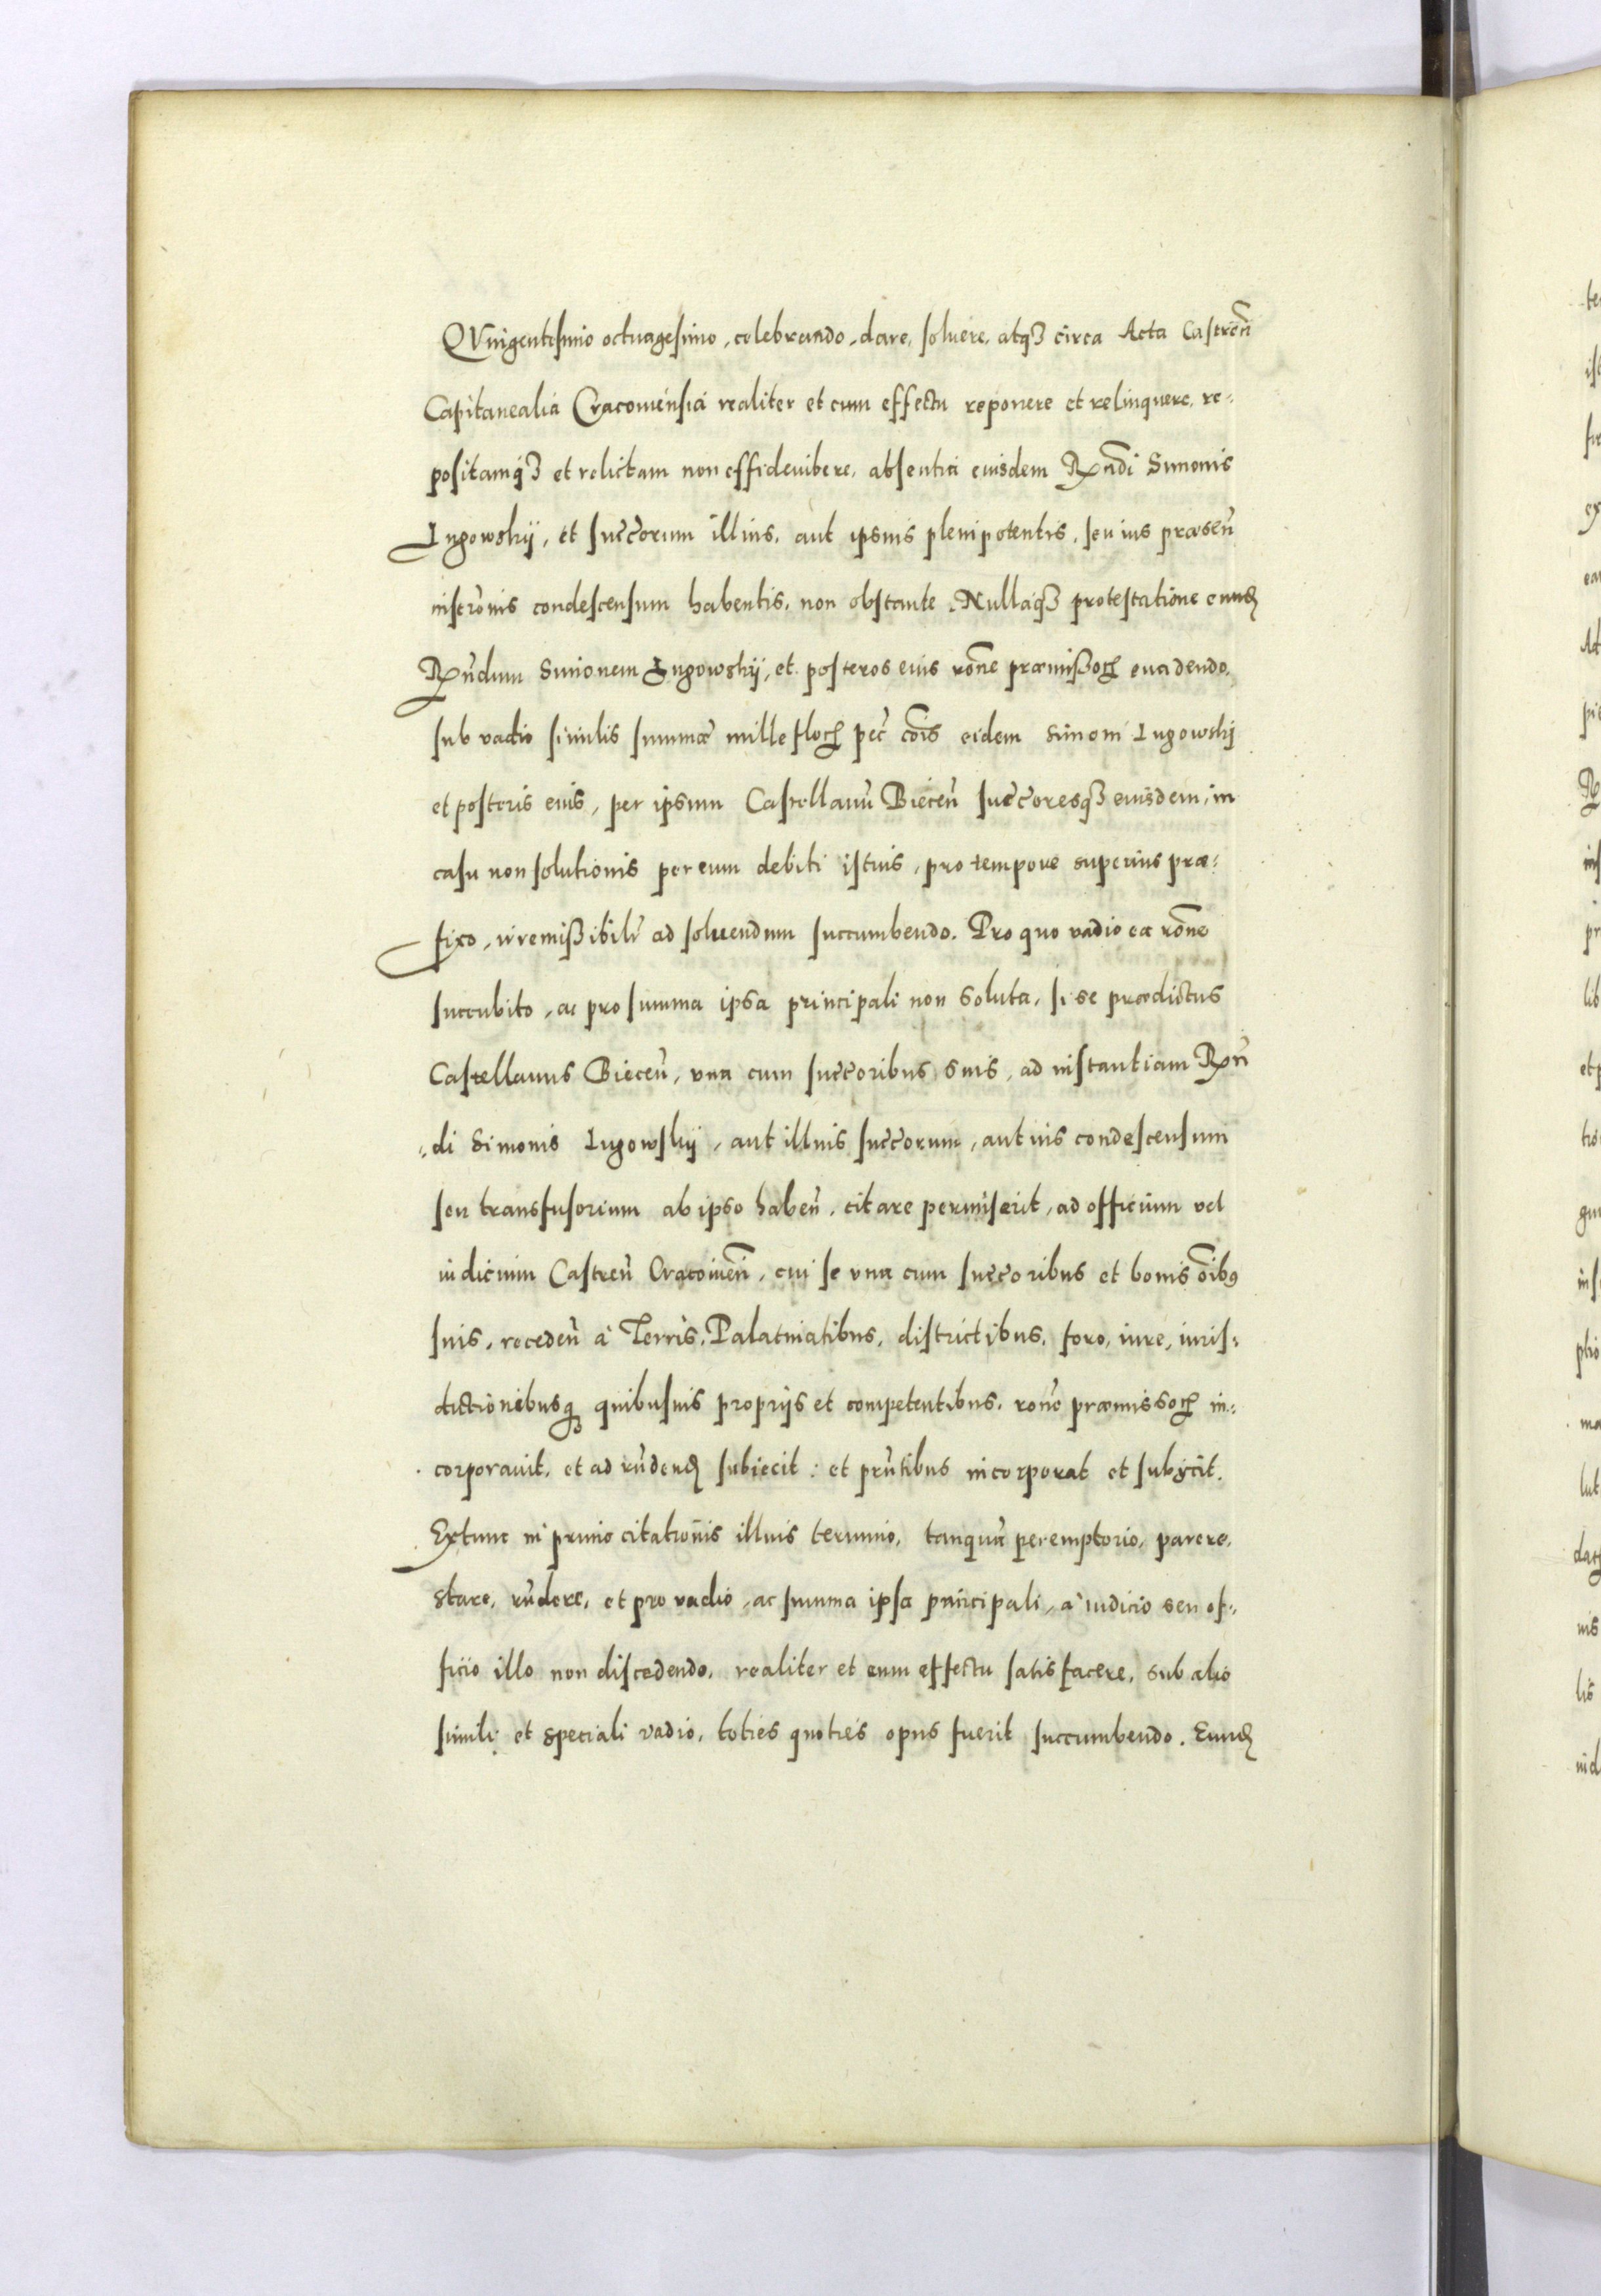 QVingentesimo octuagesimo, celebrando, dare, soluere, atqȝ circa Acta Castreñ
Capitanealia Cracouiensia realiter et cum effectu reponere et relinquere, re-
positamqȝ et relictam non effideiubere, absentia eiusdem Rx̃ndi Simonis
Lugowskÿ, et succ̃orum illius, aut ipsius plenipotentis, seu ius præseñ
inscr̃onis condescensum habentis, non obstante. Nullaqȝ protestatione eundꝫ
Rx̃ndum Simonem Lugowskÿ, et posteros eius rõne præmißoꝝ euadendo,
sub vadio similis summæ mille floꝝ pec̃ cõis eidem Simoni Lugowskj
et posteris eius, per ipsum Castellanũ Bieceñ succ̃oresqȝ eiusdem, in
casu non solutionis per eum debiti istius, pro tempore superius præ-
fixo, irremißibilr̃ ad soluendum succumbendo. Pro quo vadio ea rõne
succubito, ac pro summa ipsa principali non soluta, si se prædictus
Castellanus Bieceñ, vna cum succ̃oribus suis, ad instantiam Rx̃n
-di Simonis Lugowskÿ, aut illius succ̃orum, aut ius condescensum
seu transfusorium ab ipso habeñ, citare permiserit, ad officium vel
iudicium Castreñ Cracouieñ, cui se vna cum succ̃oribus et bonis õibꝰ
suis, recedeñ à Terris, Palatinatibus, districtibus, foro, iure, iuris-
dictionibusqȝ quibusuis proprijs et competentibus, rõne præmissoꝝ in-
corporauit, et ad rñdendꝫ subiecit: et prñtibus incorporat et subÿcit.
Extunc in primo citationis illius termino, tanquã peremptorio, parere,
stare, rñdere, et pro vadio, ac summa ipsa principali, à iudicio seu of-
ficio illo non discedendo, realiter et cum effectu satisfacere, sub alio
simili et speciali vadio, toties quoties opus fuerit succumbendo. Eundꝫ